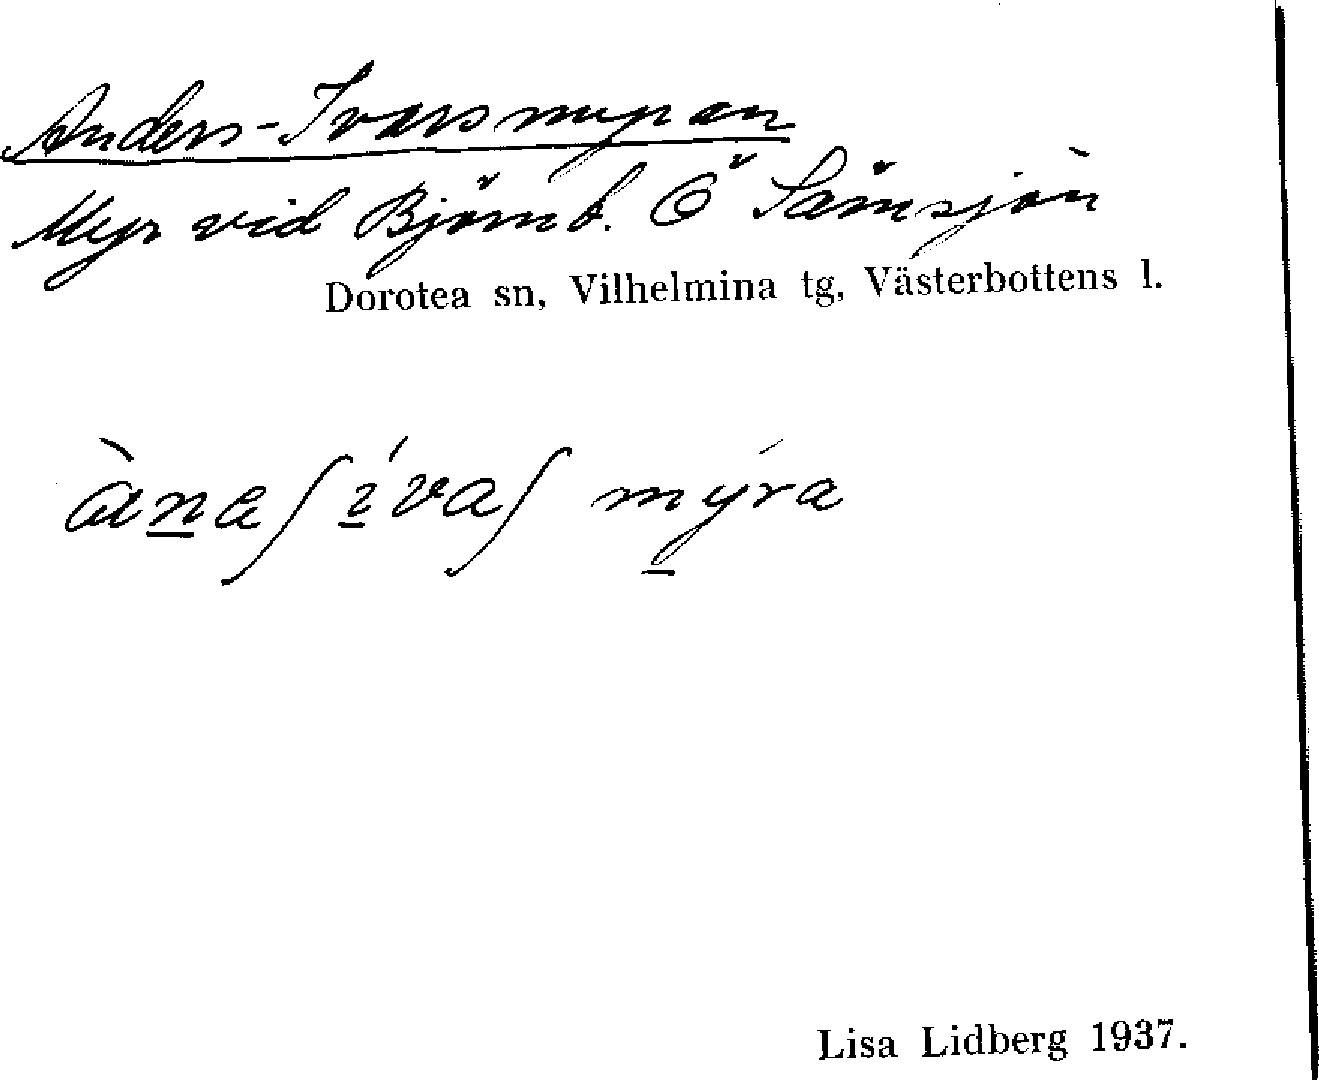 Anders-Ivarsmyran
Myr vid Björnb. Ö Särnsjön
Dorotea sn, Vilhelmina tg, Västerbottens l.
ànaʃ ívaʃ mýra
Lisa Lidberg 1937.